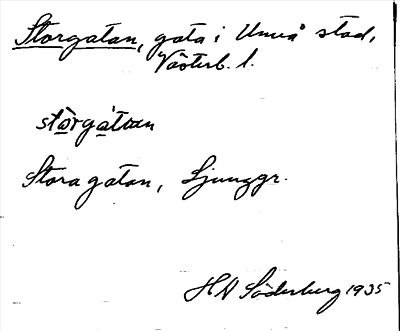 Storgatan, gata i Umeå stad,
Västerb. l.
stòrgátan
Storagatan, Ljunggr.
H Söderberg 1935